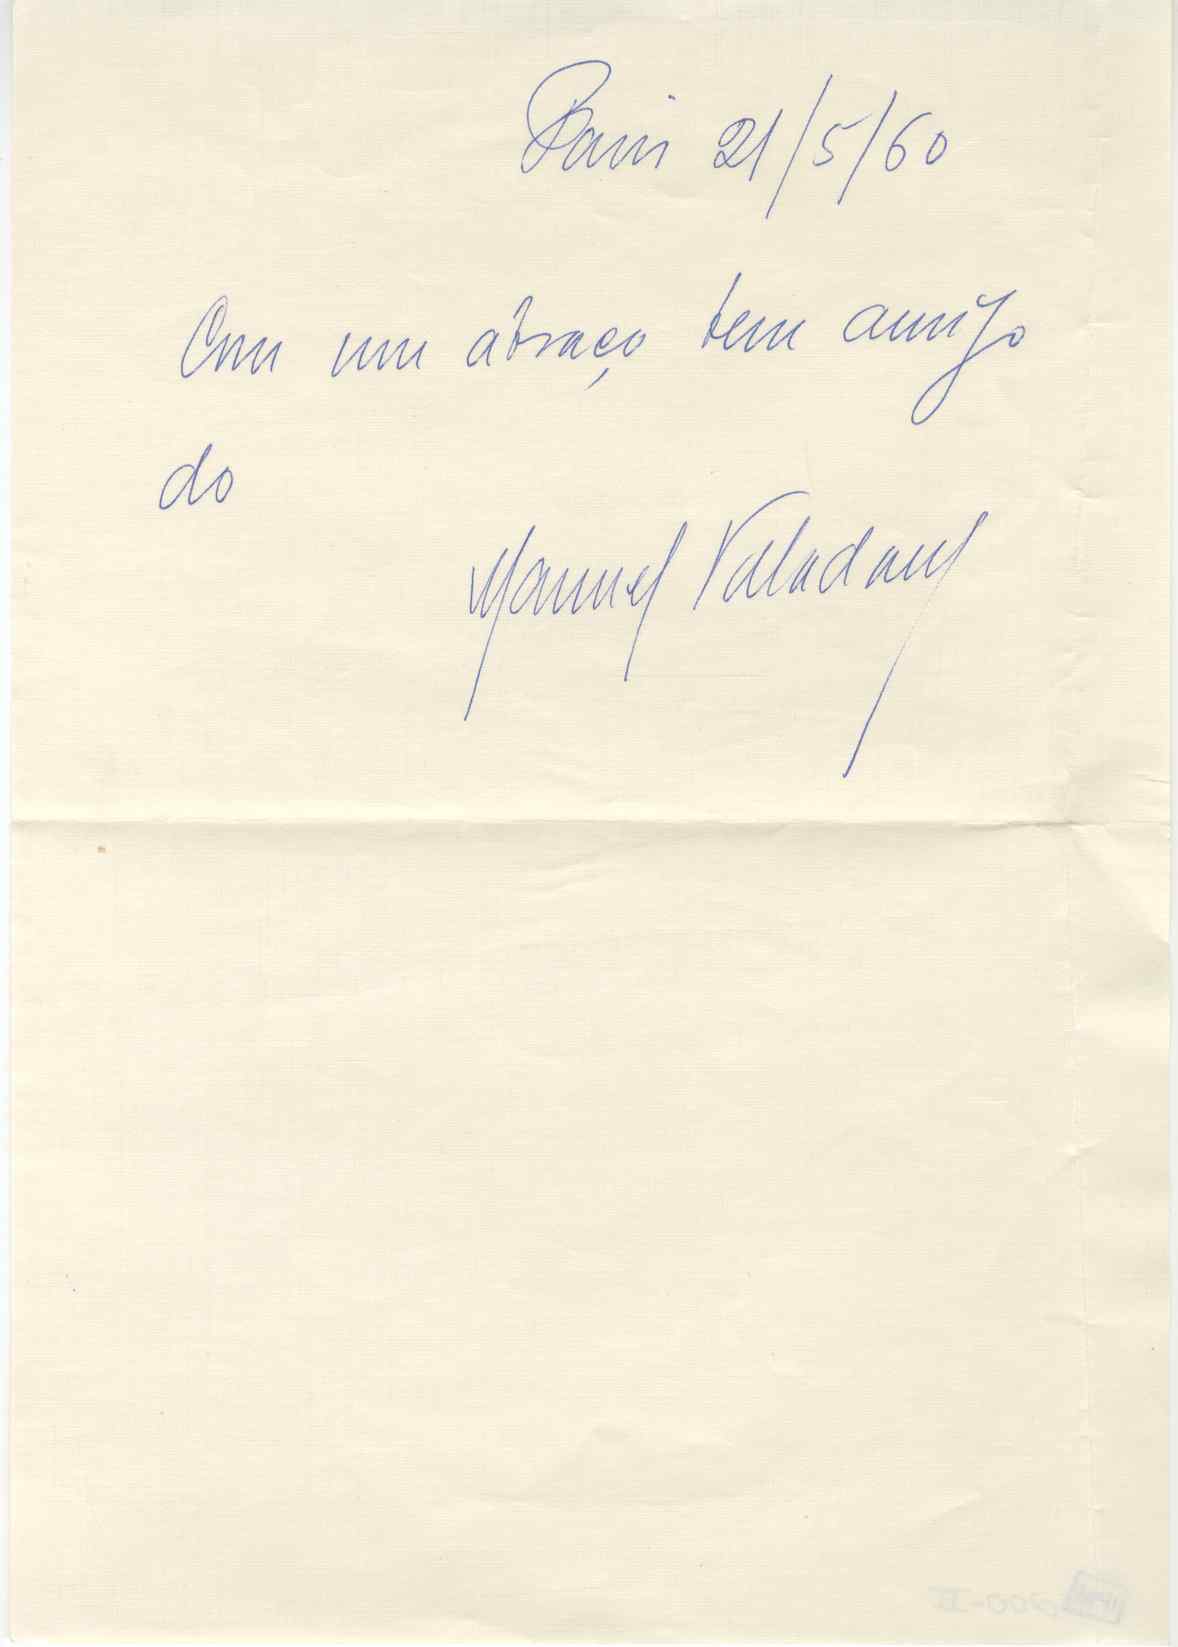 Paris 21/5/60
Com um abraço bem amigo
do
Manuel Valadares